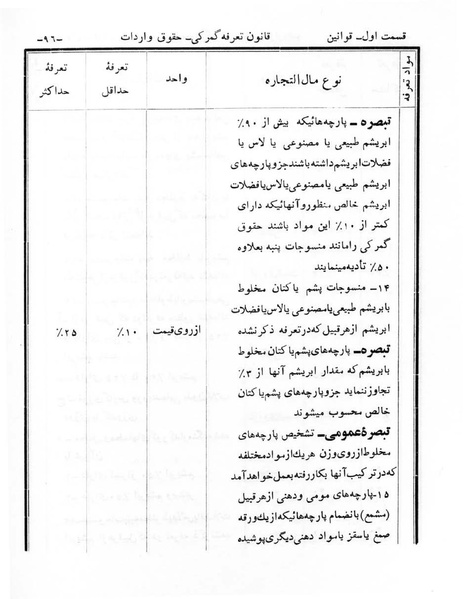 قسمت اول ـ قوانین
قانون تعرفه گمرکی ـ حقوق واردات
ـ۹۶ـ
مواد تعرفه
نوع مال‌التجاره
واحد
تعرفهٔ حداقل
تعرفهٔ حداکثر
تبصره ـ پارچه‌هائیکه بیش از ۹۰٪
ابریشم طبیعی یا مصنوعی یا لاس یا
فضلات ابریشم داشته باشند جزو پارچه‌های
ابریشم طبیعی یا مصنوعی یا لاس یا فضلات
ابریشم خالص منظور و آنهائیکه دارای
کمتر از ۱۰٪ این مواد باشند حقوق
گمرکی را مانند منسوجات پنبه بعلاوه
۵۰٪ تأدیه مینمایند
۱۴ـ منسوجات پشم یا کتان مخلوط
با بریشم طبیعی یا مصنوعی یا لاس یا فضلات
ابریشم از هر قبیل که در تعرفه ذکر نشده
از روی قیمت
۱۰٪
۲۵٪
تبصره ـ پارچه‌های پشم یا کتان مخلوط
با بریشم که مقدار ابریشم آنها از ۳٪
تجاوز ننماید جزو پارچه‌های پشم یا کتان
خالص محسوب میشوند
تبصرهٔ عمومی ـ تشخیص پارچه‌های
مخلوط از روی وزن هر یک از مواد مختلفه
که در ترکیب آنها بکار رفته بعمل خواهد آمد
۱۵ـ پارچه‌های مومی و دهنی از هر قبیل
(مشمع) بانضمام پارچه‌هائیکه از یک ورقه
صمغ یا سقز یا مواد دهنی دیگری پوشیده